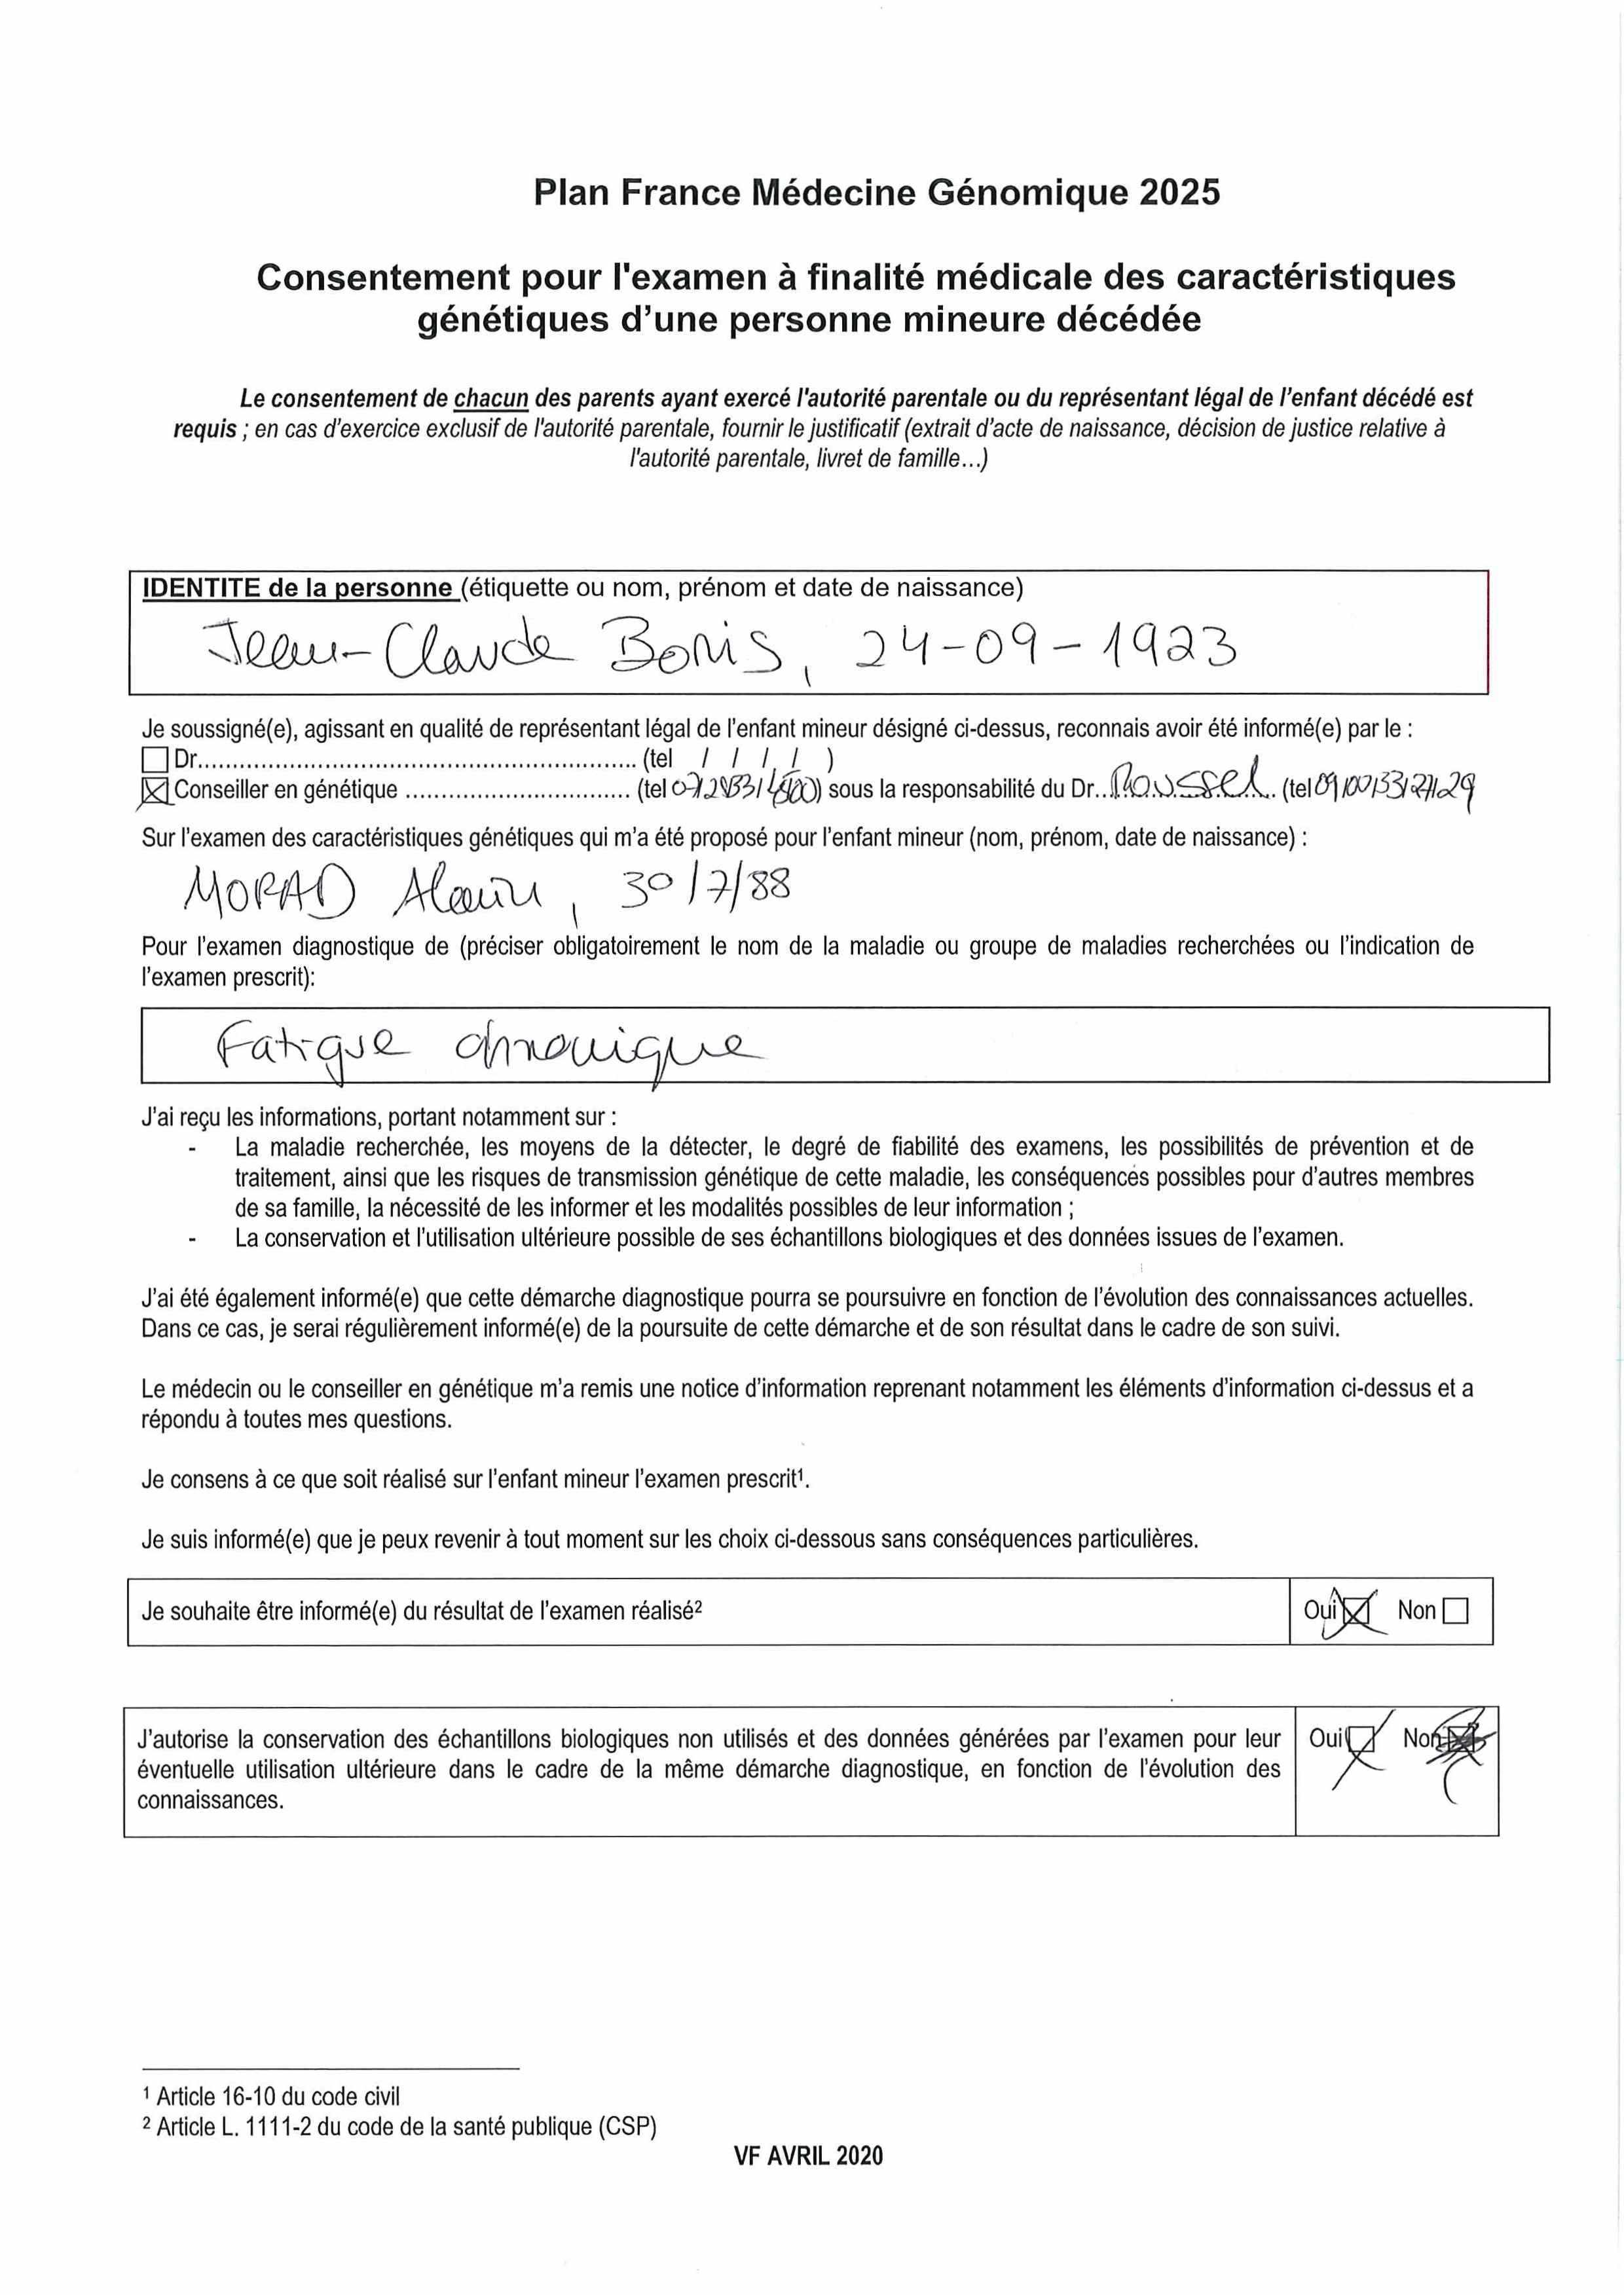 Plan France Médecine Génomique 2025
Consentement pour l'examen à finalité médicale des caractéristiques
génétiques d'une personne mineure décédée
Le consentement de chacun des parents ayant exercé l'autorité parentale ou du représentant légal de l'enfant décédé est
requis ; en cas d'exercice exclusif de l'autorité parentale, fournir le justificatif (extrait d'acte de naissance, décision de justice relative à
l'autorité parentale, livret de famille…)
IDENTITE de la personne (étiquette ou nom, prénom et date de naissance)
Jean-Claude Boris, 24-09-1923
Je soussigné(e), agissant en qualité de représentant légal de l'enfant mineur désigné ci-dessus, reconnais avoir été informé(e) par le :
☐ Dr.............................................................. (tel / / / / )
☒ Conseiller en génétique ................................ (tel) sous la responsabilité du Dr..Roussel. (tel 09/00/33/27/29
Sur l'examen des caractéristiques génétiques qui m'a été proposé pour l'enfant mineur (nom, prénom, date de naissance) :
MORAD Alain, 30/7/88
Pour l'examen diagnostique de (préciser obligatoirement le nom de la maladie ou groupe de maladies recherchées ou l'indication de
l'examen prescrit):
Fatigue chronique
J'ai reçu les informations, portant notamment sur :
- La maladie recherchée, les moyens de la détecter, le degré de fiabilité des examens, les possibilités de prévention et de
traitement, ainsi que les risques de transmission génétique de cette maladie, les conséquences possibles pour d'autres membres
de sa famille, la nécessité de les informer et les modalités possibles de leur information ;
- La conservation et l'utilisation ultérieure possible de ses échantillons biologiques et des données issues de l'examen.
J'ai été également informé(e) que cette démarche diagnostique pourra se poursuivre en fonction de l'évolution des connaissances actuelles.
Dans ce cas, je serai régulièrement informé(e) de la poursuite de cette démarche et de son résultat dans le cadre de son suivi.
Le médecin ou le conseiller en génétique m'a remis une notice d'information reprenant notamment les éléments d'information ci-dessus et a
répondu à toutes mes questions.
Je consens à ce que soit réalisé sur l'enfant mineur l'examen prescrit¹.
Je suis informé(e) que je peux revenir à tout moment sur les choix ci-dessous sans conséquences particulières.
Je souhaite être informé(e) du résultat de l'examen réalisé² Oui ☒ Non ☐
J'autorise la conservation des échantillons biologiques non utilisés et des données générées par l'examen pour leur Oui ☒ Non
éventuelle utilisation ultérieure dans le cadre de la même démarche diagnostique, en fonction de l'évolution des
connaissances.
¹ Article 16-10 du code civil
² Article L. 1111-2 du code de la santé publique (CSP)
VF AVRIL 2020